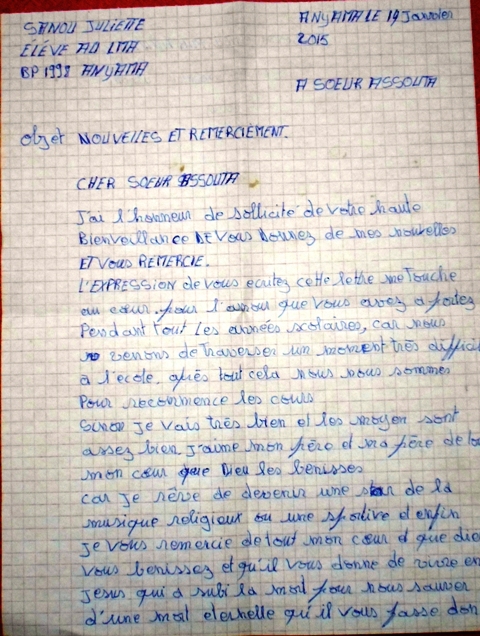 SANOU JULIETTE
ELEVE AD LMA
BP 1998 ANYAMA
ANYAMA LE 19 Janvier
2015
A SOEUR ASSOUTA
Objet NOUVELLES ET REMERCIEMENT.
CHER SOEUR ASSOUTA
J'ai l'honneur de sollicité de votre haute
Bienveillance DE Vous Donnez de mes nouvelles
ET Vous REMERCIE.
L'EXPRESSION de vous ecritez cette lettre me Touche
au cœur. pour l'amour que vous avez aportez
Pendant tout les années scolaires, car nous
venons de Traverser un moment très difficil
a l'ecole, après tout cela nous nous sommes
Pour recommence les cours
Sinon je vais très bien et les moyen sont
assez bien j'aime mon père et ma père de to
mon cœur que Dieu les benisses
car je rêve de devenir une star de la
musique religieux ou une spotive et enfin
je vous remercie de tout mon cœur et que die
vous benissez et qu'il vous donne de vivre en
Jesus qui a subi la mort pour nous sauver
d'une mort eternelle qu'il vous fasse don